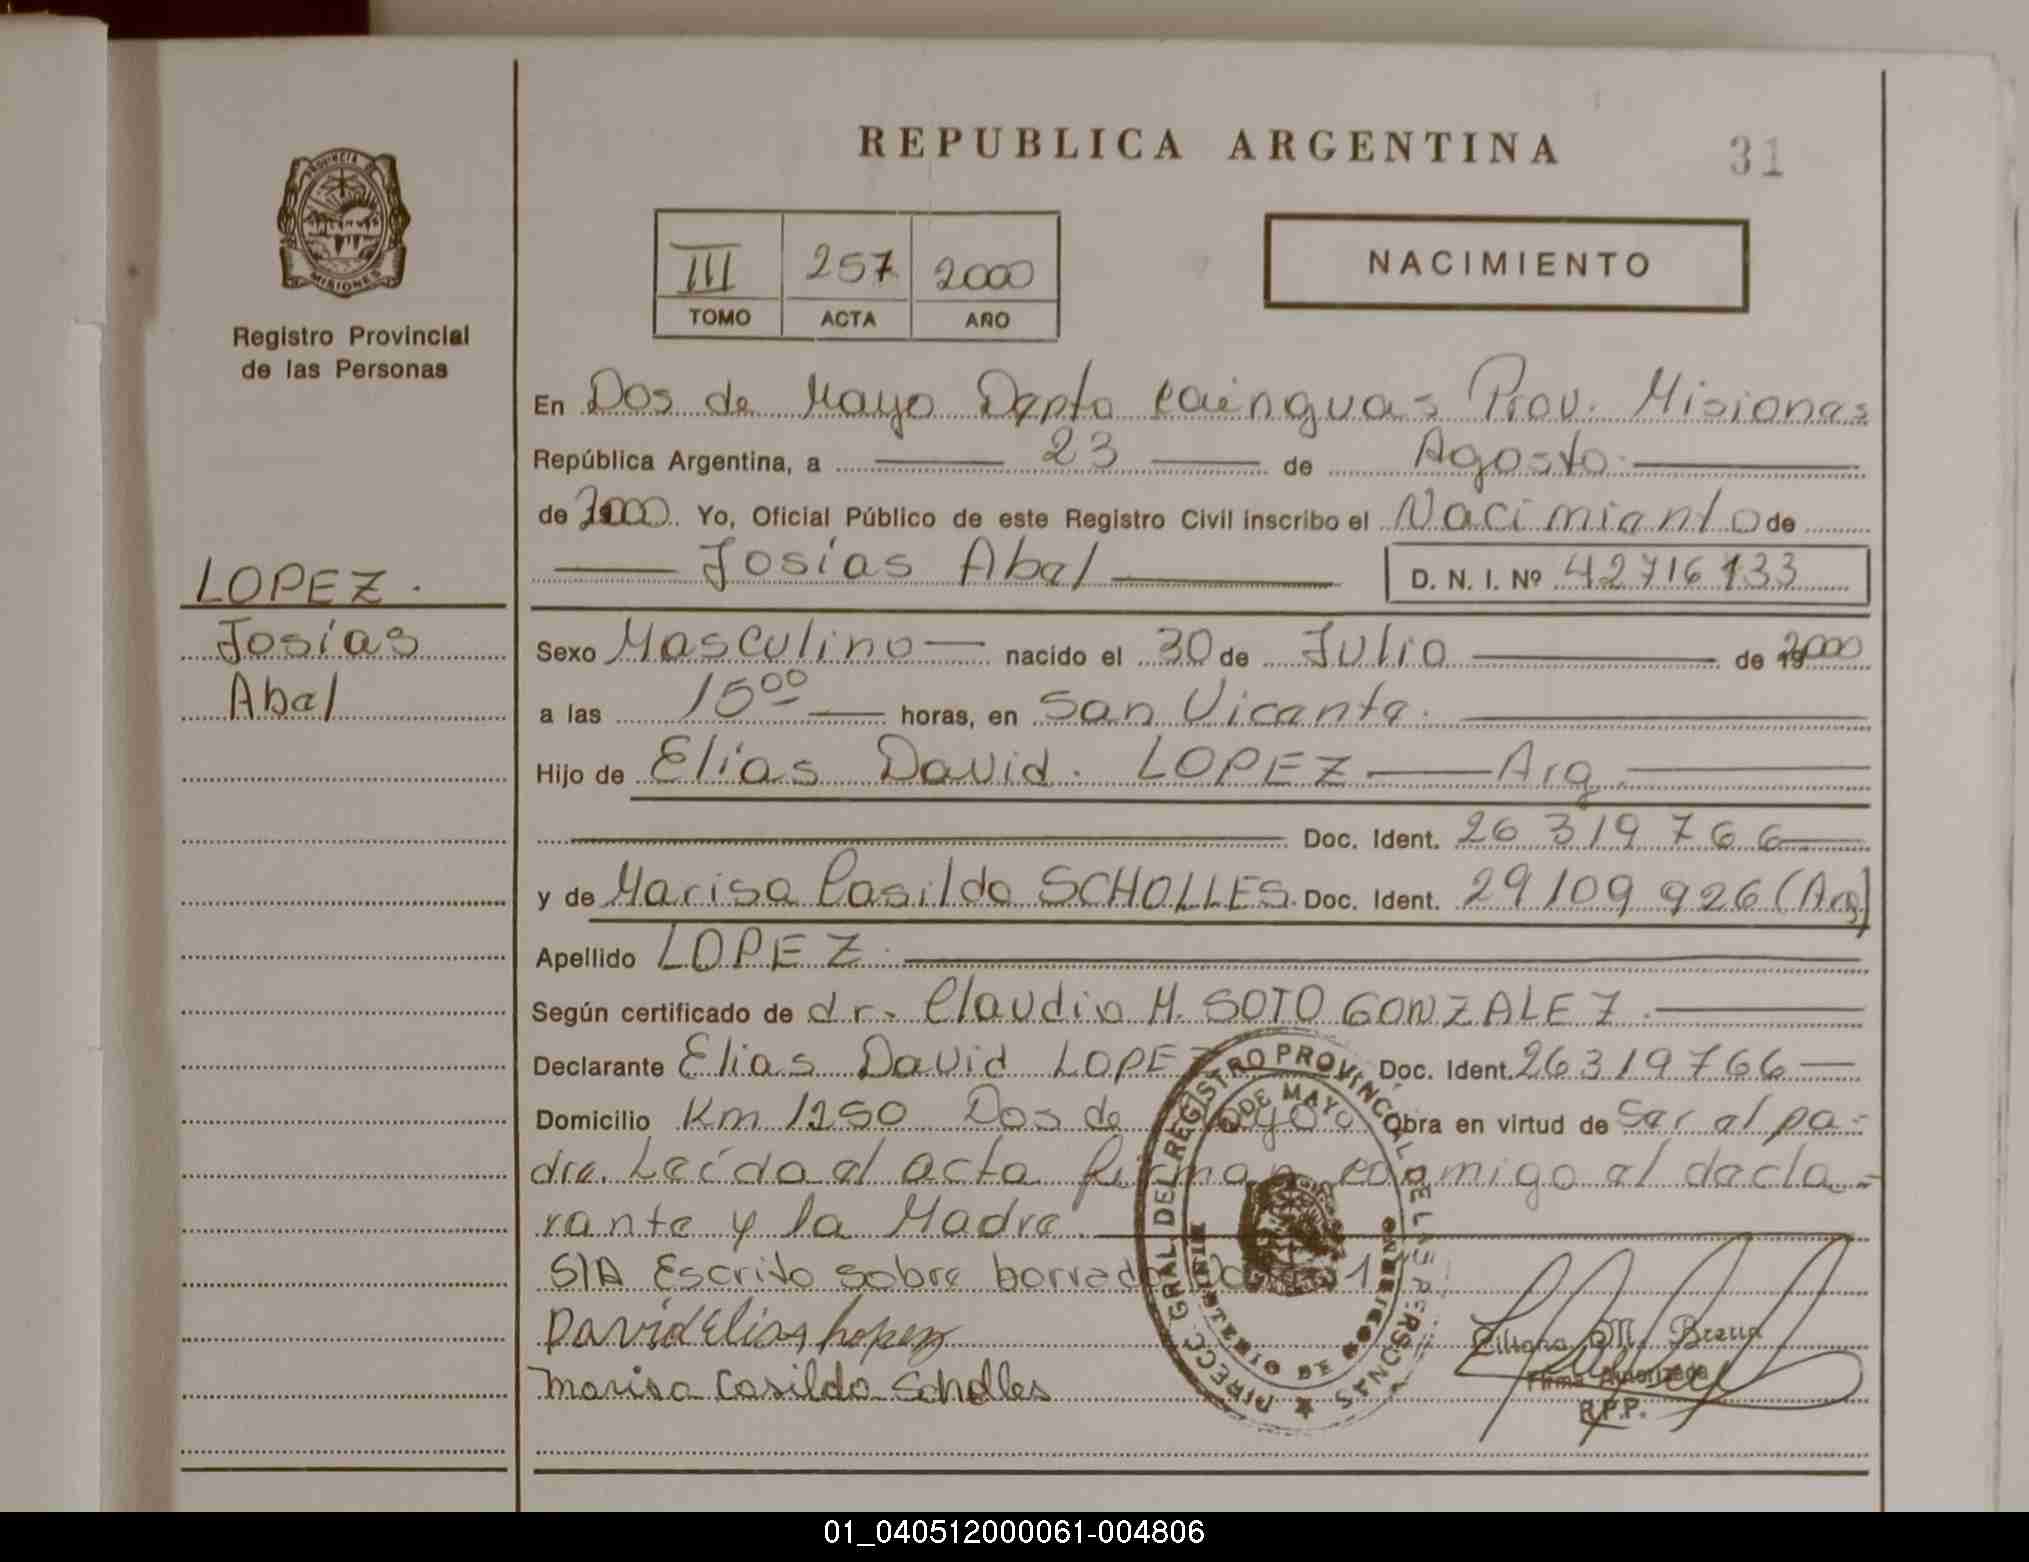 REPUBLICA ARGENTINA
31
PROVINCIA DE
MISIONES
Registro Provincial
de las Personas
III 257 2000
TOMO ACTA AÑO
NACIMIENTO
En Dos de Mayo Depto Cainguas Prov. Misiones
República Argentina, a 23 de Agosto
de 2000. Yo, Oficial Público de este Registro Civil inscribo el Nacimiento de
Josías Abel D. N. I. Nº 42716133
LOPEZ.
Josías
Abel
Sexo Masculino nacido el 30 de Julio de 2000
a las 15⁰⁰ horas, en San Vicente.
Hijo de Elias David. LOPEZ Arg
Doc. Ident. 26 319 766
y de Marisa Casilda SCHOLLES. Doc. Ident. 29109 926 (Arg)
Apellido LOPEZ.
Según certificado de dr. Claudio H. SOTO GONZALEZ.
Declarante Elias David LOPEZ Doc. Ident. 26319766
Domicilio Km 1250 Dos de Mayo Obra en virtud de Ser el pa-
dre. Leída el acta firman conmigo el decla-
rante y la Madre.
S/A Escrito sobre borrado
David Elias Lopez
Marisa Casilda Scholles
DIRECC. GRAL. DEL REGISTRO PROVINCIAL DE LAS PERSONAS
DE MAYO
MINISTERIO DE GOBIERNO
Liliana M. Braun
Firma Autorizada
R.P.P.
01_040512000061-004806